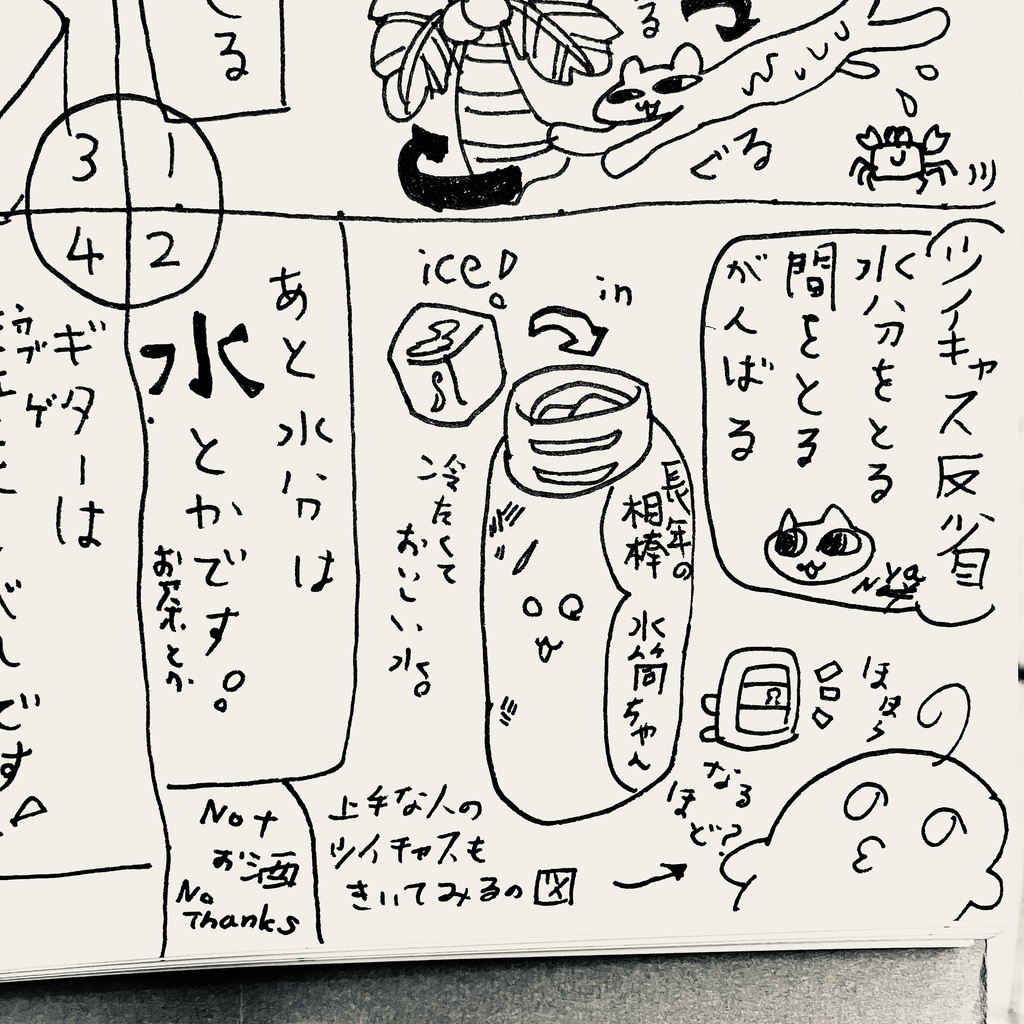 る
ぐる
3
1
4
2
ツイキャス反省
水分をとる
間をとる
がんばる
ice!
in
長年の
相棒
水筒ちゃん
冷たくて
おいしい水。
あと水分は
水とかです。
お茶とか
Not
お酒
No
Thanks
ほほう
なる
ほど?
上手な人の
ツイキャスも
きいてみるの図
ギターは